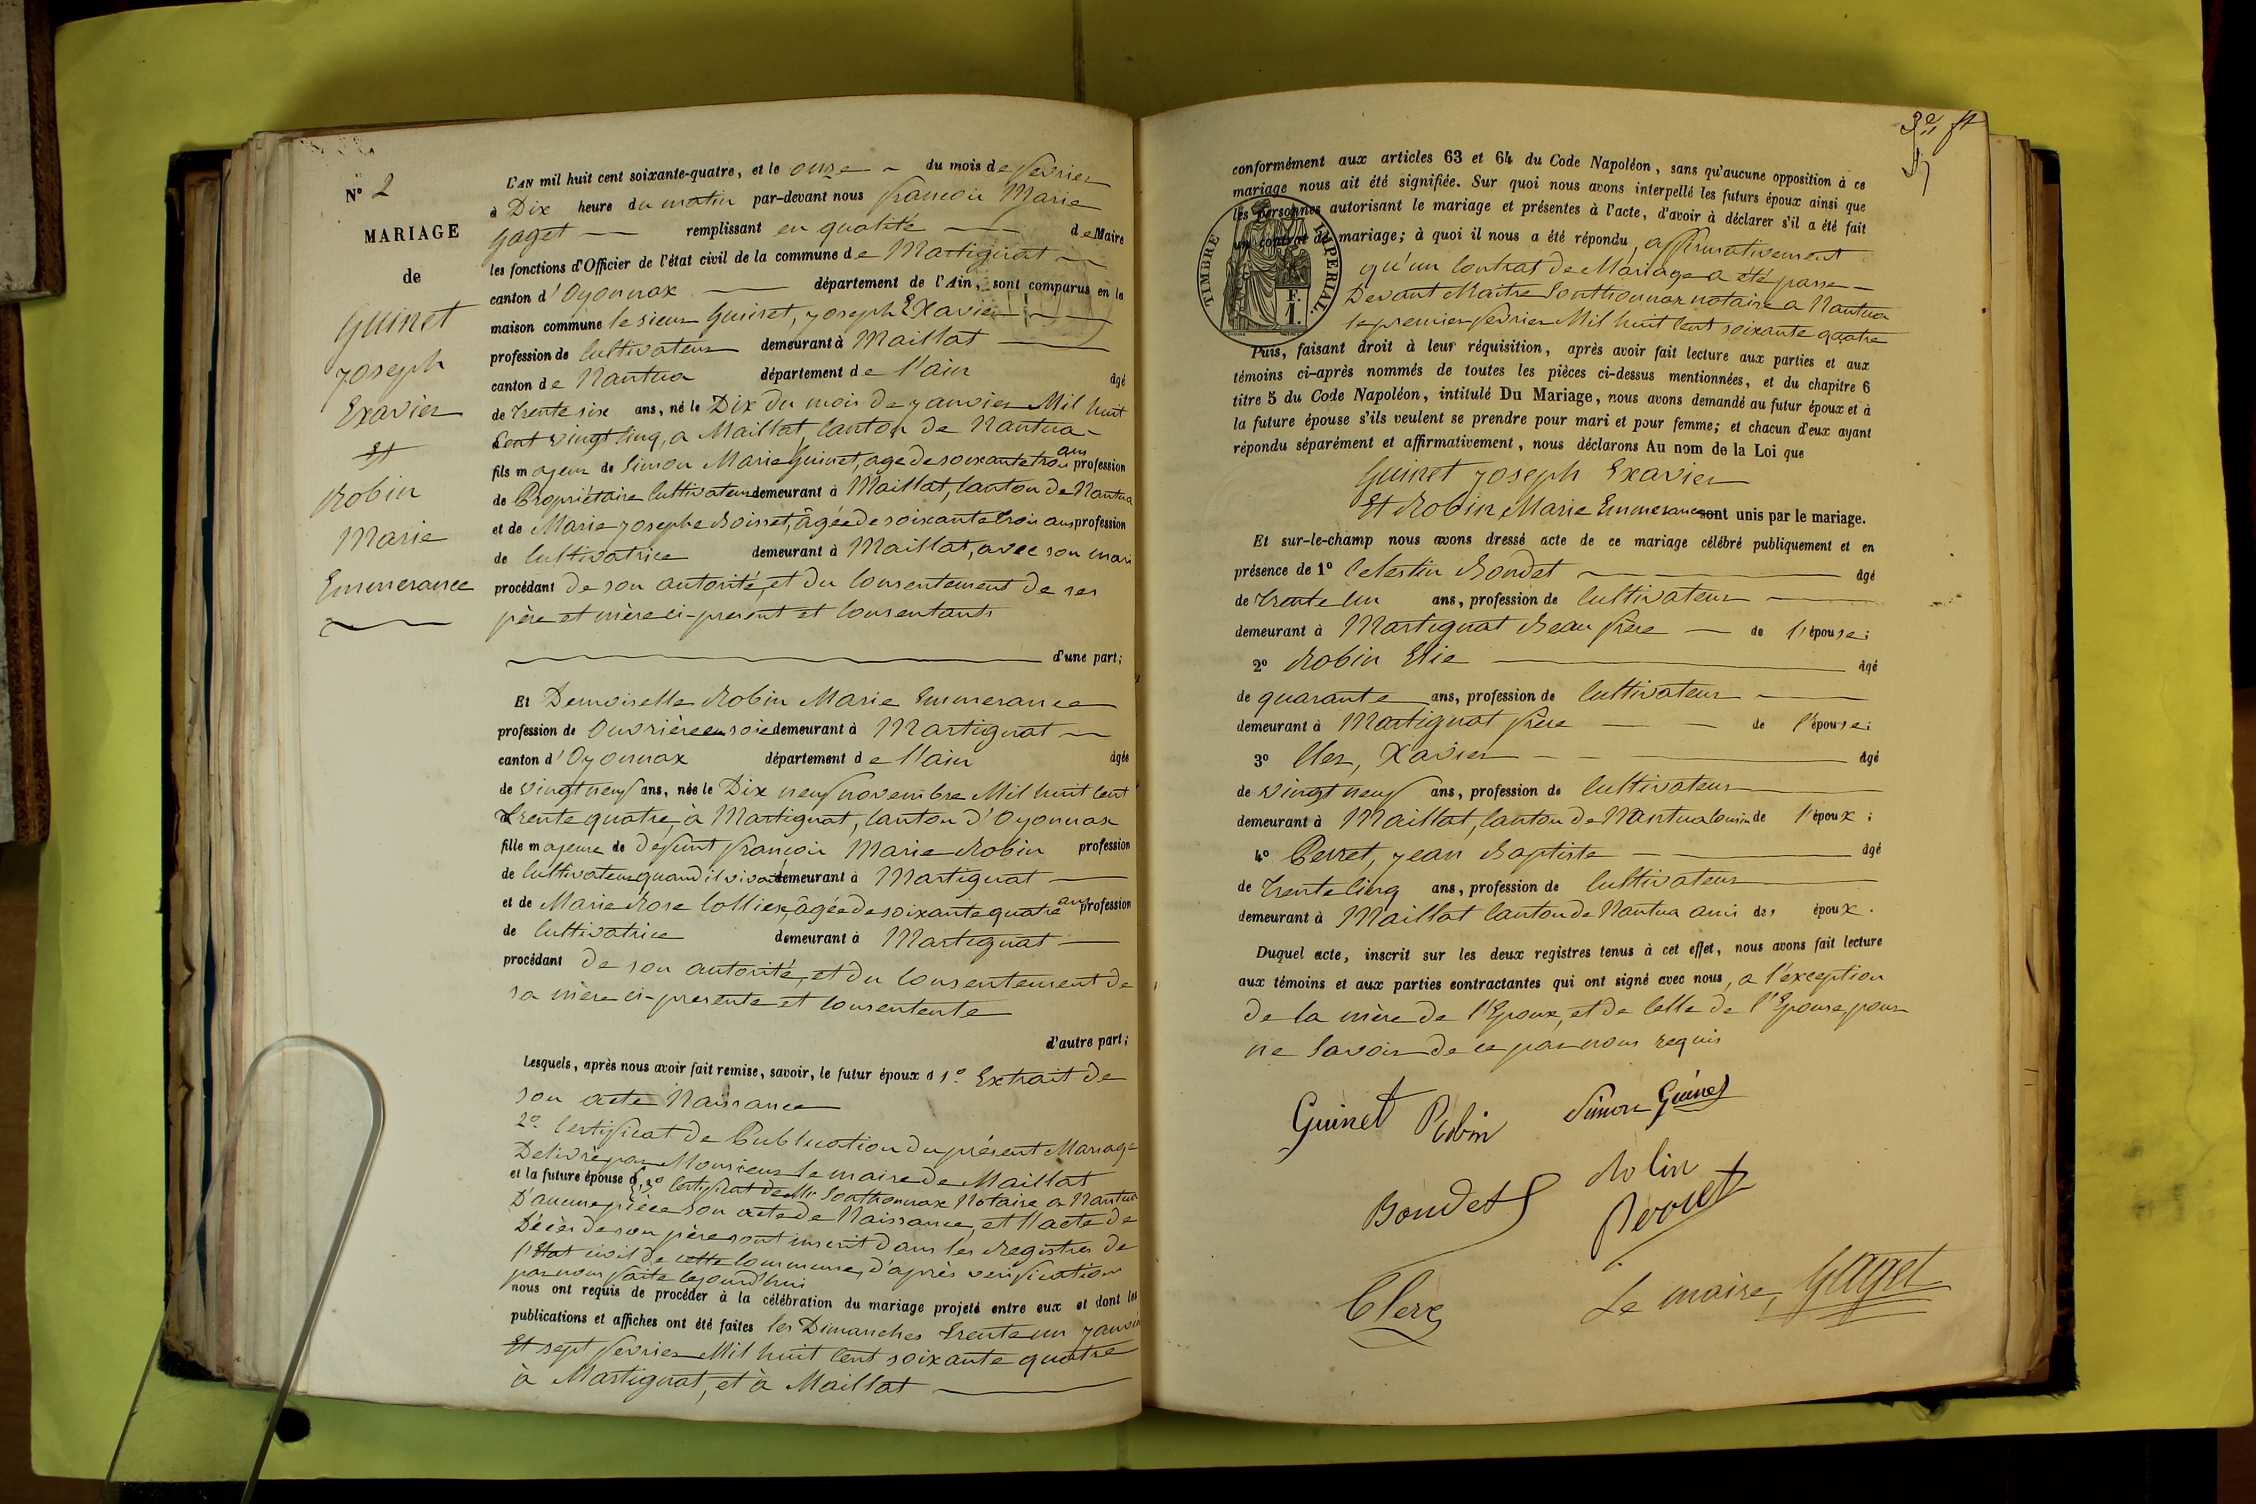 N° 2
MARIAGE
de
Guinet
Joseph
Exavier
Et
Robin
Marie
Emmerance
L'AN mil huit cent soixante-quatre, et le onze du mois de février
à Dix heure du matin par-devant nous françois Marie
Gaget remplissant en qualité de Maire
les fonctions d'Officier de l'état civil de la commune de Martignat
canton d'Oyonnax département de l'Ain, sont comparus en la
maison commune le sieur Guinet, Joseph Exavier
profession de Cultivateur demeurant à Maillat
canton de Nantua département de l'ain âgé
de trente six ans, né le Dix du mois de janvier Mil huit
Cent vingt cinq, a Maillat, Canton de Nantua
fils majeur de Simon Marie Guinet, age de soixante trois ans profession
de Propriétaire Cultivateur demeurant à Maillat, Canton de Nantua
et de Marie Josephe Roisset, âgée de soixante trois ans profession
de Cultivatrice demeurant à Maillat, avec son mari
procédant de son autorité, et du Consentement de ses
père et mère ci-present et Consentants
d'une part;
Et Demoiselle Robin Marie Emmerance
profession de Ouvrière en soie demeurant à Martignat
canton d'Oyonnax département de l'ain âgée
de vingt neuf ans, née le Dix neuf novembre Mil huit Cent
trente quatre, à Martignat, Canton d'Oyonnax
fille majeure de defunt françois Marie Robin profession
de Cultivateur quand il vivait demeurant à Martignat
et de Marie Rose Collier, âgée de soixante quatre ans profession
de Cultivatrice demeurant à Martignat
procédant de son autorité, et du Consentement de
sa mère ci-presente et Consentente
d'autre part;
Lesquels, après nous avoir fait remise, savoir, le futur époux d 1° Extrait de
son acte Naissance
2° Certificat de Publication du présent Mariage
Delivré par Monsieur le maire de Maillat
et la future épouse d 3° Certificat de Mr Southonnax Notaire a Nantua
D'aucune pièce son acte de Naissance, et l'acte de
Décès de son père sont inscrit dans les Registres de
l'Etat civil de cette Commune, d'après verification
par nous faite cejourd'hui
nous ont requis de procéder à la célébration du mariage projeté entre eux et dont les
publications et affiches ont été faites les Dimanches trente un janvier
Et sept fevrier Mil huit Cent soixante quatre
à Martignat, et à Maillat
conformément aux articles 63 et 64 du Code Napoléon, sans qu'aucune opposition à ce
mariage nous ait été signifiée. Sur quoi nous avons interpellé les futurs époux ainsi que
les personnes autorisant le mariage et présentes à l'acte, d'avoir à déclarer s'il a été fait
un contrat de mariage; à quoi il nous a été répondu, affirmativement
qu'un Contrat de Mariage a été passé
Devant Maître Southonnax notaire a Nantua
le premier fevrier Mil huit Cent soixante quatre
TIMBRE IMPERIAL.
Puis, faisant droit à leur réquisition, après avoir fait lecture aux parties et aux
témoins ci-après nommés de toutes les pièces ci-dessus mentionnées, et du chapitre 6
titre 5 du Code Napoléon, intitulé Du Mariage, nous avons demandé au futur époux et à
la future épouse s'ils veulent se prendre pour mari et pour femme; et chacun d'eux ayant
répondu séparément et affirmativement, nous déclarons Au nom de la Loi que
Guinet Joseph Exavier
Et Robin, Marie Emmerance sont unis par le mariage.
Et sur-le-champ nous avons dressé acte de ce mariage célébré publiquement et en
présence de 1° Celestin Bondet âgé
de trente Un ans, profession de Cultivateur
demeurant à Martignat Beau frère de l'épouse;
2° Robin Elie âgé
de quarante ans, profession de Cultivateur
demeurant à Martignat frère de l'épouse;
3° Cler, Xavier âgé
de vingt neuf ans, profession de Cultivateur
demeurant à Maillat, Canton de Nantua Cousin de l'époux;
4° Perret, Jean Baptiste âgé
de trente Cinq ans, profession de Cultivateur
demeurant à Maillat Canton de Nantua ami des époux.
Duquel acte, inscrit sur les deux registres tenus à cet effet, nous avons fait lecture
aux témoins et aux parties contractantes qui ont signé avec nous, a l'exception
de la mère de l'Epoux, et de Celle de l'Epouse, pour
ne Savoir de ce par nous requis
Guinet Robin Simon Guinet
Bondet Robin
Perret
Clerc Le maire, Gaget